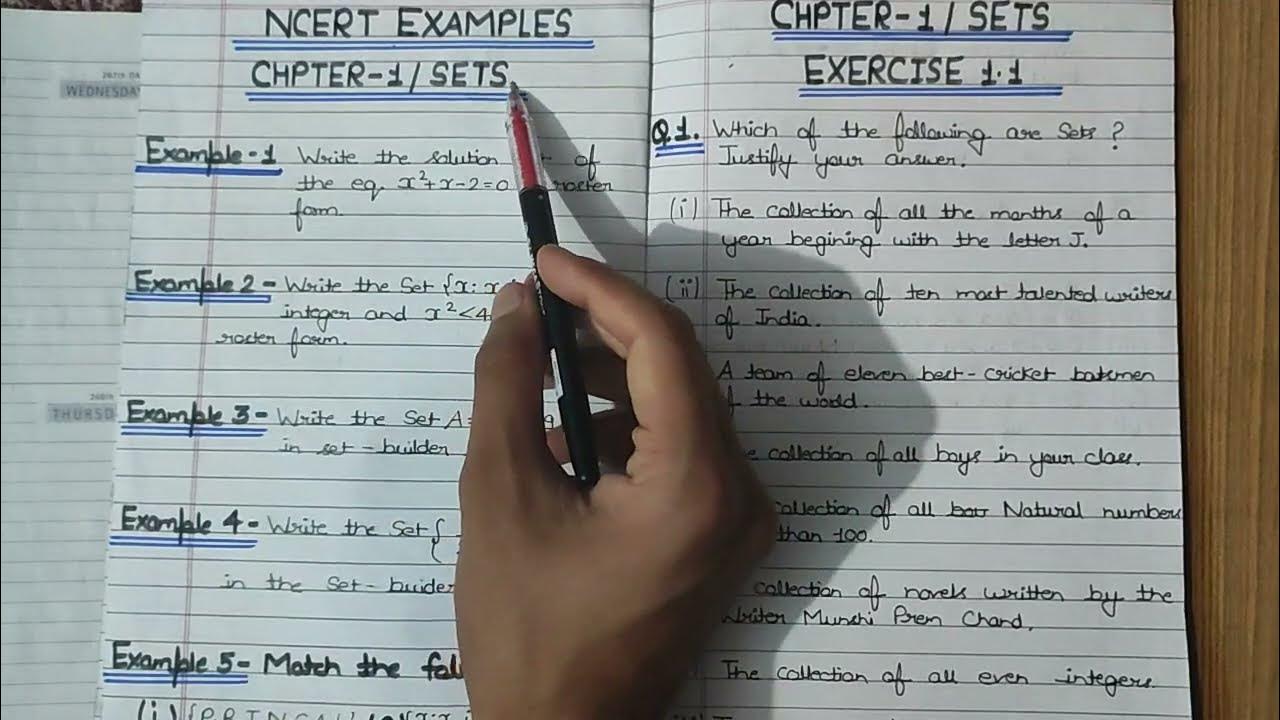 WEDNESDAY
THURSD
NCERT EXAMPLES
CHPTER-1/SETS
Example-1 Write the solution of
the eq. x²+x-2=0 roster
form.
Example 2- Write the Set {x: x
integer and x²<4
roster form.
Example 3- Write the Set A=
in set-builder
Example 4- Write the Set {
in the Set-buider
Example 5- Match the fol
CHPTER-1/SETS
EXERCISE 1.1
Q.1. Which of the following are Sets ?
Justify your answer.
(i) The collection of all the months of a
year begining with the letter J.
(ii) The collection of ten most talented writers
of India.
A team of eleven best-cricket batsmen
the world.
collection of all boys in your class.
collection of all Natural numbers
than 100.
collection of novels written by the
Writer Munshi Prem Chand.
The collection of all even integers.